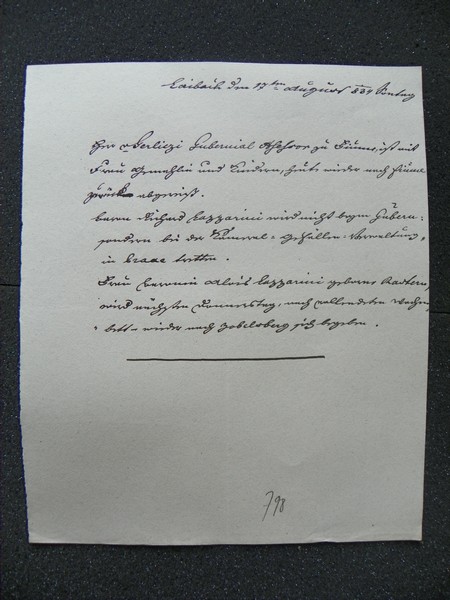 Laibach den 17ten August 831 Sontag
Herr v Terlizi Gubernial Assessor zu Fiume, ist mit
Frau Gemahlin und Kindern, heute wieder nach Fiume
zurück abgereist.
Baron Richard Lazzarini wird nicht beym Gubern:
sondern bei der Kameral-Gefällen-Verwaltung,
in tretten.
Frau Baronin Alois Lazzarini geborne Rastern,
wird nächsten Donnerstag, nach vollendeten Wochen
bett- wieder nach Zobelsberg sich begeben.
798